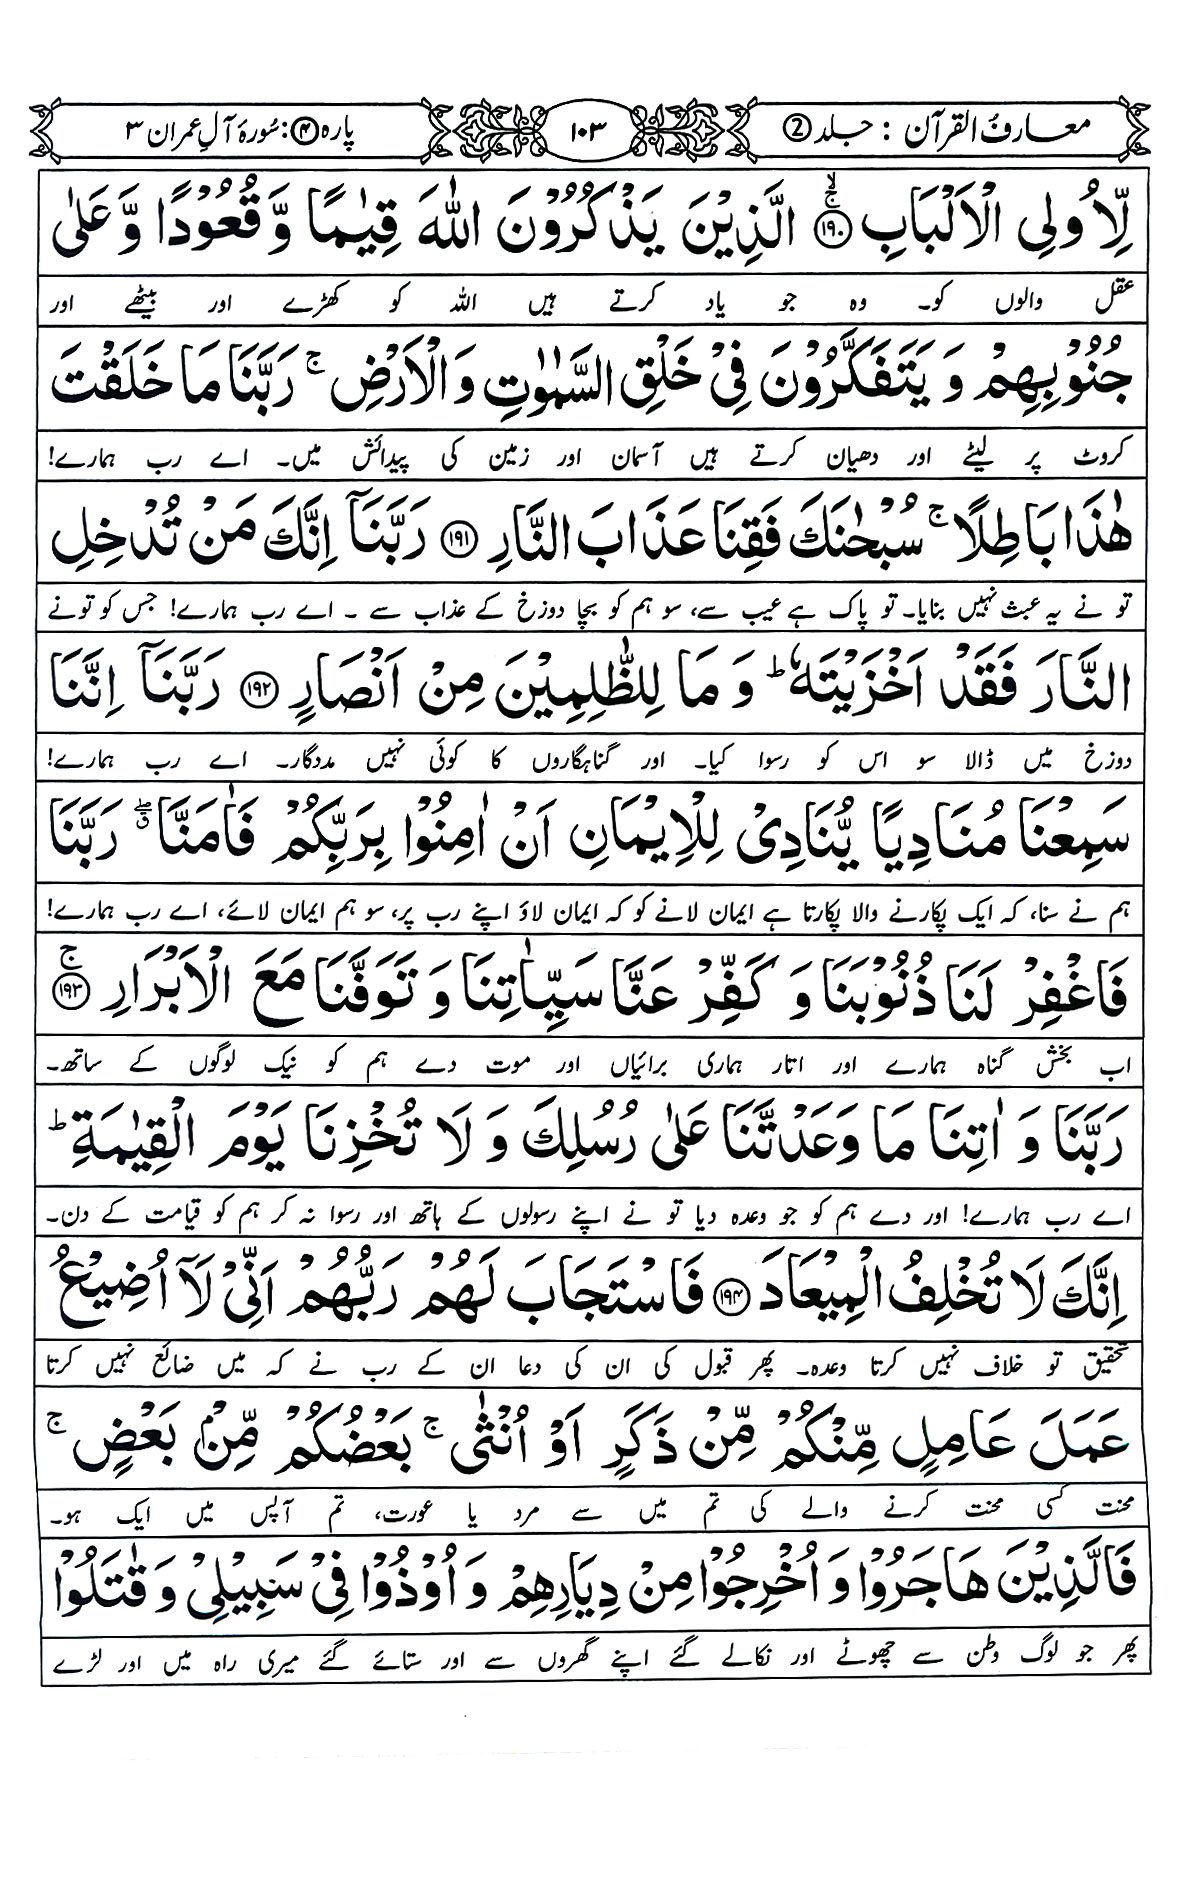 معارف القرآن : جلد ② ۱۰۳ پارہ ④ : سُورۂ آلِ عمران ۳
لِّاُولِی الۡاَلۡبَابِ ﴿۱۹۰﴾ۚۙ الَّذِیۡنَ یَذۡکُرُوۡنَ اللّٰہَ قِیٰمًا وَّ قُعُوۡدًا وَّ عَلٰی
عقل والوں کو۔ وہ جو یاد کرتے ہیں اللہ کو کھڑے اور بیٹھے اور
جُنُوۡبِہِمۡ وَ یَتَفَکَّرُوۡنَ فِیۡ خَلۡقِ السَّمٰوٰتِ وَ الۡاَرۡضِ ۚ رَبَّنَا مَا خَلَقۡتَ
کروٹ پر لیٹے اور دھیان کرتے ہیں آسمان اور زمین کی پیدائش میں۔ اے رب ہمارے!
ہٰذَا بَاطِلًا ۚ سُبۡحٰنَکَ فَقِنَا عَذَابَ النَّارِ ﴿۱۹۱﴾ رَبَّنَاۤ اِنَّکَ مَنۡ تُدۡخِلِ
تو نے یہ عبث نہیں بنایا۔ تو پاک ہے عیب سے، سو ہم کو بچا دوزخ کے عذاب سے ۔ اے رب ہمارے! جس کو تونے
النَّارَ فَقَدۡ اَخۡزَیۡتَہٗ ؕ وَ مَا لِلظّٰلِمِیۡنَ مِنۡ اَنۡصَارٍ ﴿۱۹۲﴾ رَبَّنَاۤ اِنَّنَا
دوزخ میں ڈالا سو اس کو رسوا کیا۔ اور گناہگاروں کا کوئی نہیں مددگار۔ اے رب ہمارے!
سَمِعۡنَا مُنَادِیًا یُّنَادِیۡ لِلۡاِیۡمَانِ اَنۡ اٰمِنُوۡا بِرَبِّکُمۡ فَاٰمَنَّا ٭ۖ رَبَّنَا
ہم نے سنا، کہ ایک پکارنے والا پکارتا ہے ایمان لانے کو کہ ایمان لاؤ اپنے رب پر، سو ہم ایمان لائے، اے رب ہمارے!
فَاغۡفِرۡ لَنَا ذُنُوۡبَنَا وَ کَفِّرۡ عَنَّا سَیِّاٰتِنَا وَ تَوَفَّنَا مَعَ الۡاَبۡرَارِ ﴿۱۹۳﴾ۚ
اب بخش گناہ ہمارے اور اتار ہماری برائیاں اور موت دے ہم کو نیک لوگوں کے ساتھ۔
رَبَّنَا وَ اٰتِنَا مَا وَعَدۡتَّنَا عَلٰی رُسُلِکَ وَ لَا تُخۡزِنَا یَوۡمَ الۡقِیٰمَۃِ ؕ
اے رب ہمارے! اور دے ہم کو جو وعدہ دیا تو نے اپنے رسولوں کے ہاتھ اور رسوا نہ کر ہم کو قیامت کے دن۔
اِنَّکَ لَا تُخۡلِفُ الۡمِیۡعَادَ ﴿۱۹۴﴾ فَاسۡتَجَابَ لَہُمۡ رَبُّہُمۡ اَنِّیۡ لَاۤ اُضِیۡعُ
تحقیق تو خلاف نہیں کرتا وعدہ۔ پھر قبول کی ان کی دعا ان کے رب نے کہ میں ضائع نہیں کرتا
عَمَلَ عَامِلٍ مِّنۡکُمۡ مِّنۡ ذَکَرٍ اَوۡ اُنۡثٰی ۚ بَعۡضُکُمۡ مِّنۡۢ بَعۡضٍ ۚ
محنت کسی محنت کرنے والے کی تم میں سے مرد یا عورت، تم آپس میں ایک ہو۔
فَالَّذِیۡنَ ہَاجَرُوۡا وَ اُخۡرِجُوۡا مِنۡ دِیَارِہِمۡ وَ اُوۡذُوۡا فِیۡ سَبِیۡلِیۡ وَ قٰتَلُوۡا
پھر جو لوگ وطن سے چھوٹے اور نکالے گئے اپنے گھروں سے اور ستائے گئے میری راہ میں اور لڑے